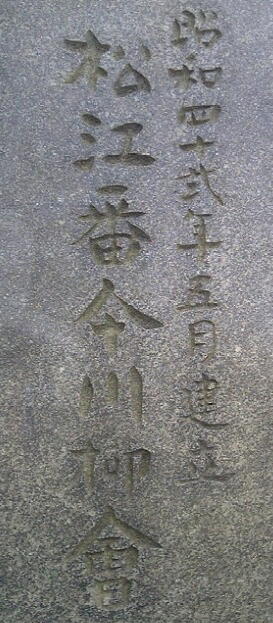 昭和四十弐年五月建立
松江番仐川柳會